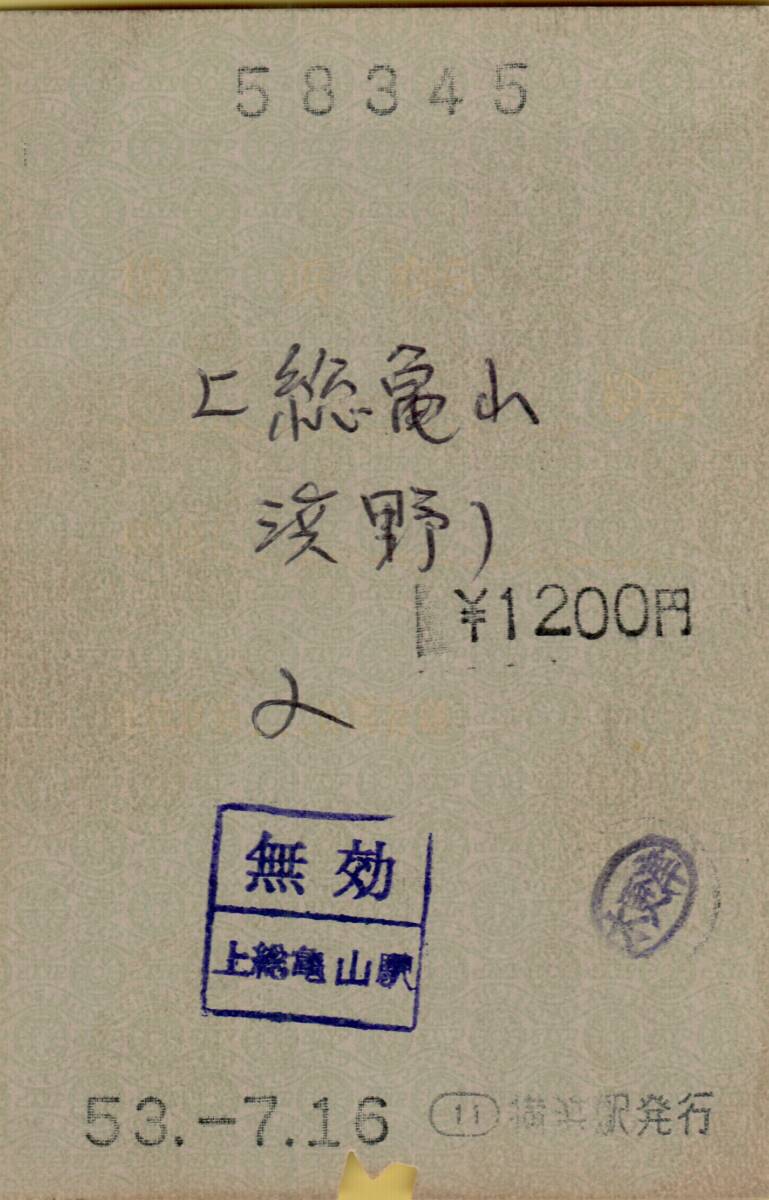 58345
横浜から
上総亀山
浜野
¥1200円
2
無効
上総亀山駅
53.-7.16 (11) 横浜駅発行